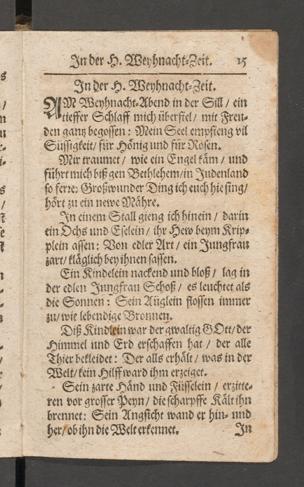 In der H. Weyhnacht-Zeit. 15
In der H. Weyhnacht-Zeit.
AM Weyhnacht-Abend in der Still / ein
tieffer Schlaff mich überfiel / mit Freu-
den gantz begossen: Mein Seel empfieng vil
Süssigkeit / für Hönig und für Rosen.
Mir traumet / wie ein Engel käm / und
führt mich biß gen Bethlehem / in Judenland
so ferr: Großwunder Ding ich euch hie sing /
hört zu ein newe Mähre.
In einem Stall gieng ich hinein / darin
ein Ochs und Eselein / ihr Hew beym Krip-
plein assen: Von edler Art / ein Jungfrau
zart / kläglich bey ihnen sassen.
Ein Kindelein nackend und bloß / lag in
der edlen Jungfrau Schoß / es leuchtet als
die Sonnen: Sein Äuglein flossen immer
zu / wie lebendige Bronnen.
Diß Kindlein war der gwaltig GOtt / der
Himmel und Erd erschaffen hat / der alle
Thier bekleidet: Der alls erhält / was in der
Welt / kein Hilff ward ihm erzeiget.
Sein zarte Händ und Füsselein / erzitte-
ren vor grosser Peyn / die scharpffe Kält ihn
brennet: Sein Angsicht wand er hin- und
her / ob ihn die Welt erkennet.
In